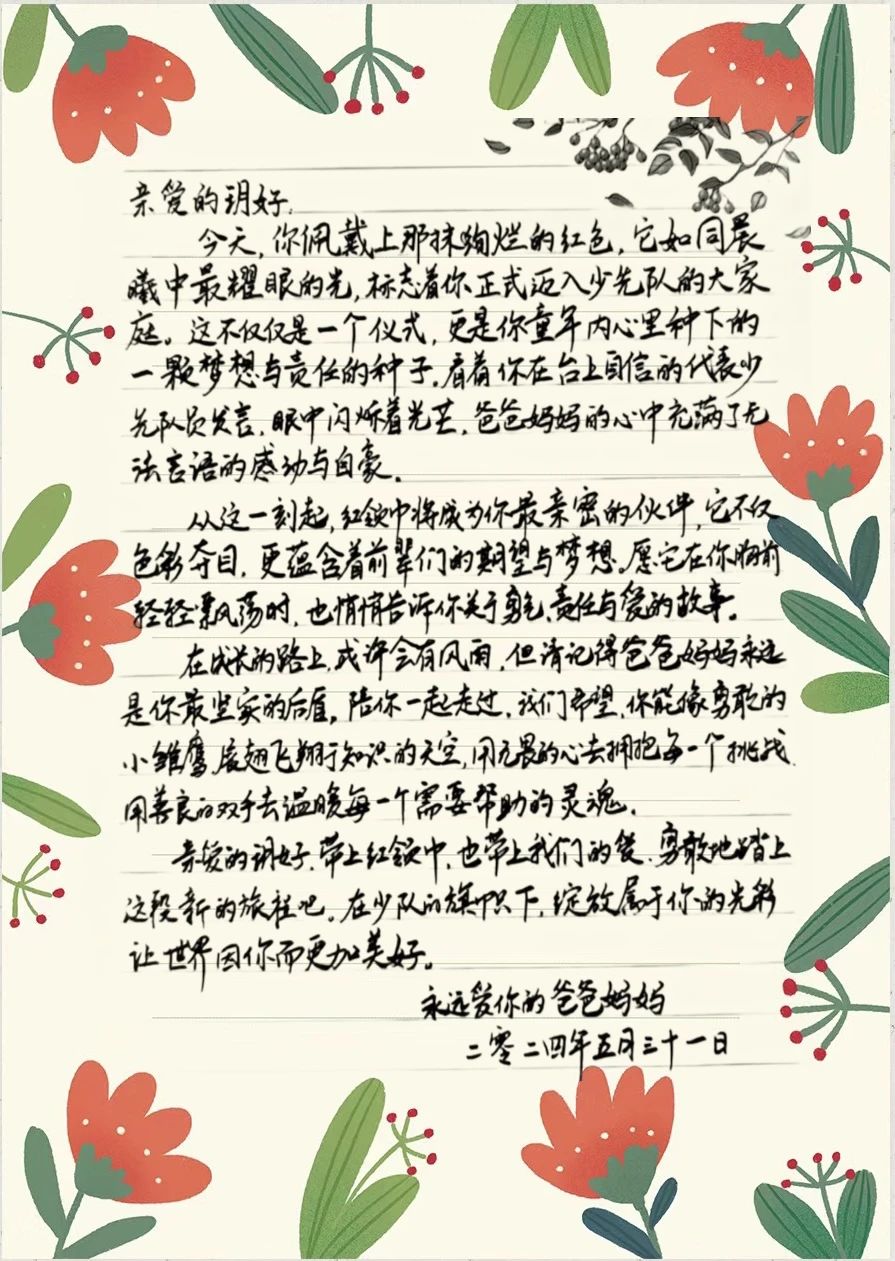 亲爱的玥好,
今天,你佩戴上那抹绚烂的红色,它如同晨
曦中最耀眼的光,标志着你正式迈入少先队的大家
庭。这不仅仅是一个仪式,更是你童年内心里种下的
一颗梦想与责任的种子。看着你在台上自信的代表少
先队员发言,眼中闪烁着光芒,爸爸妈妈的心中充满了无
法言语的感动与自豪。
从这一刻起,红领巾将成为你最亲密的伙伴,它不仅
色彩夺目,更蕴含着前辈们的期望与梦想,愿它在你胸前
轻轻飘荡时,也悄悄告诉你关于勇气、责任与爱的故事。
在成长的路上,或许会有风雨,但请记得爸爸妈妈永远
是你最坚实的后盾,陪你一起走过,我们希望,你能像勇敢的
小雏鹰,展翅飞翔于知识的天空,用无畏的心去拥抱每一个挑战,
用善良的双手去温暖每一个需要帮助的灵魂。
亲爱的玥好,带上红领巾,也带上我们的爱,勇敢地踏上
这段新的旅程吧。在少队的旗帜下,绽放属于你的光彩
让世界因你而更加美好。
永远爱你的爸爸妈妈
二零二四年五月三十一日